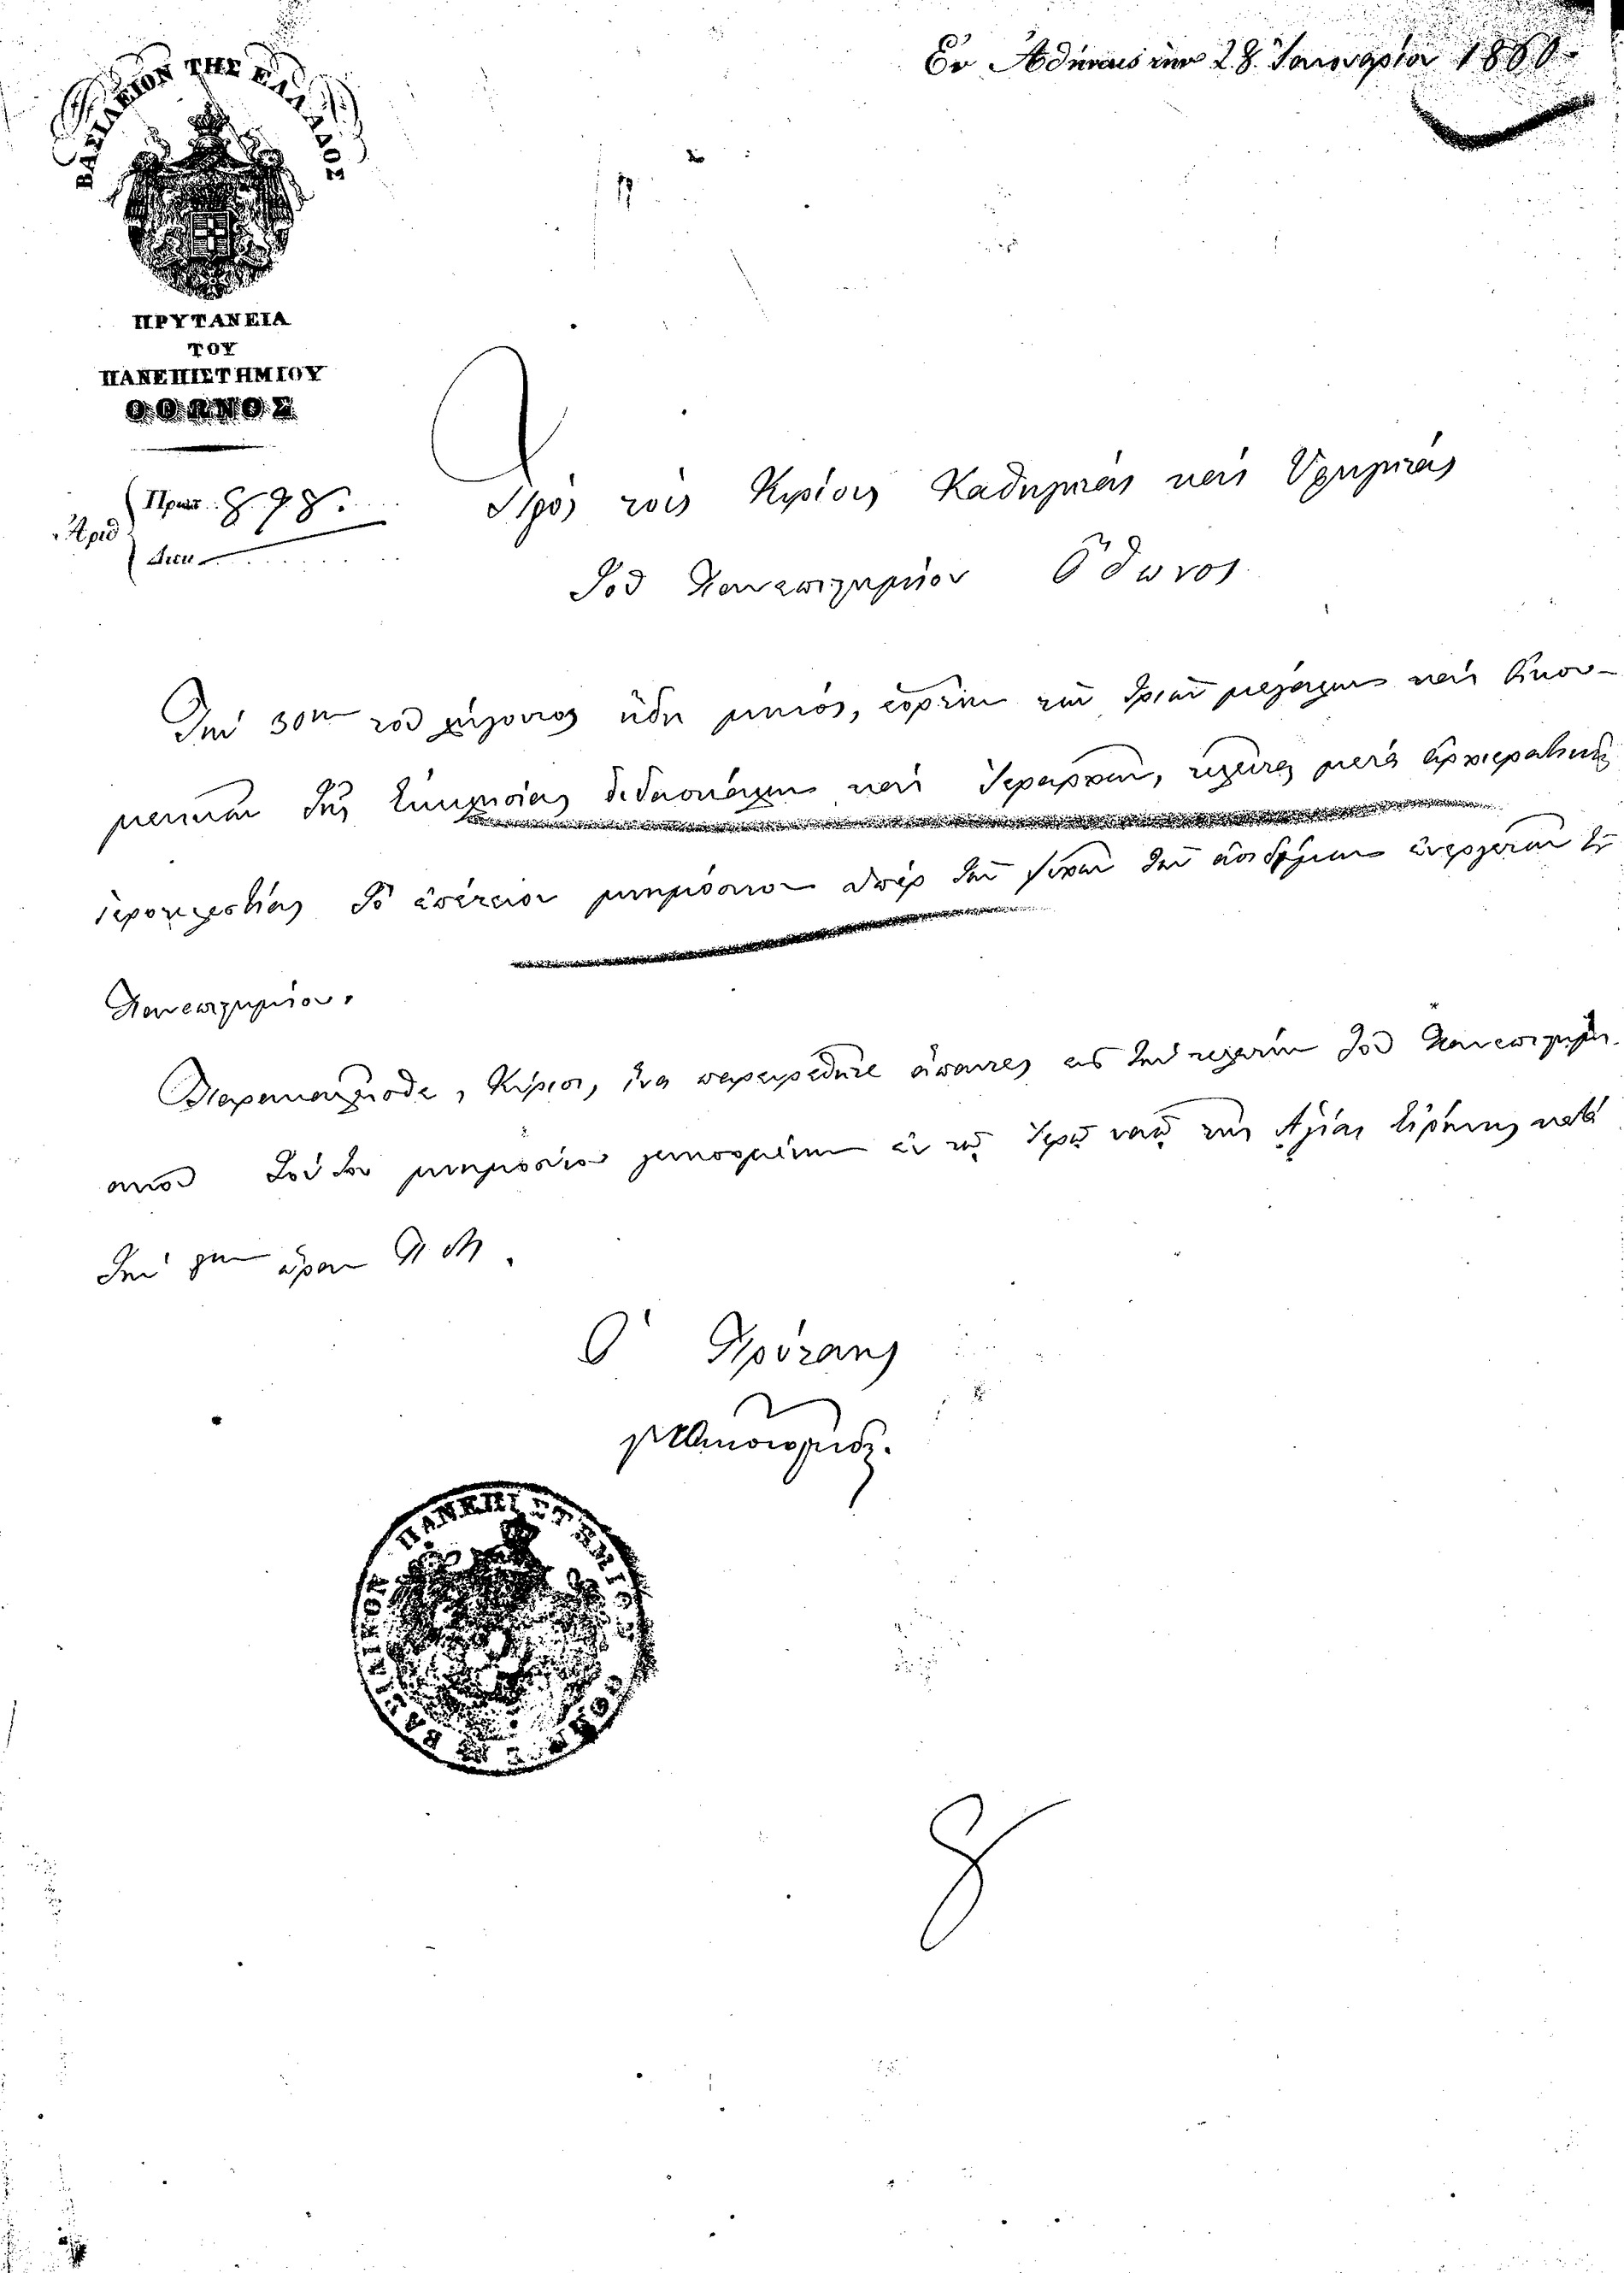 Ἐν Ἀθήναις τὴν 28 Ἰανουαρίου 1860
ΒΑΣΙΛΕΙΟΝ ΤΗΣ ΕΛΛΑΔΟΣ
ΠΡΥΤΑΝΕΙΑ
ΤΟΥ
ΠΑΝΕΠΙΣΤΗΜΙΟΥ
ΟΘΩΝΟΣ
Ἀριθ
Πρωτ. 898.
Διεκ
Πρὸς τοὺς Κυρίους Καθηγητὰς καὶ Ὑφηγητὰς
Τοῦ Πανεπιστημίου Ὄθωνος
Τὴν 30ην τοῦ λήγοντος ἤδη μηνός, ἑορτὴν τῶν τριῶν μεγάλων καὶ Οἰκου-
μενικῶν τῆς Ἐκκλησίας διδασκάλων καὶ Ἱεραρχῶν, τελεῖται μετὰ ἀρχιερατικῆς
ἱεροτελεστίας τὸ ἐπέτειον μνημόσυνον ὑπὲρ τῶν ψυχῶν τῶν ἀοιδίμων εὐεργετῶν τοῦ
Πανεπιστημίου.
Παρακαλεῖσθε, Κύριοι, ἵνα παρευρεθῆτε ἅπαντες εἰς τὴν τελετὴν τοῦ Πανεπιστημι-
ακοῦ τούτου μνημοσύνου γενησομένην ἐν τῷ Ἱερῷ ναῷ τῆς Ἁγίας Εἰρήνης κατὰ
τὴν ὥραν Π. Μ.
Ὁ Πρύτανης
ΒΑΣΙΛΙΚΟΝ ΠΑΝΕΠΙΣΤΗΜΙΟΝ ΟΘΩΝΟΣ